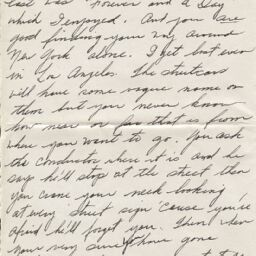 last was "Forever and a Day"
which I enjoyed. And you are
good finding your way around
New York alone. I get lost even
in Los Angeles. The streetcars
will have some vague name on
them but you never know
how near or far that is from
where you want to go. You ask
the conductor where it is and he
say he'll stop at the street then
you crane your neck looking
at every street sign 'cause you're
afraid he'll forget you. Then when
your very sure you have gone